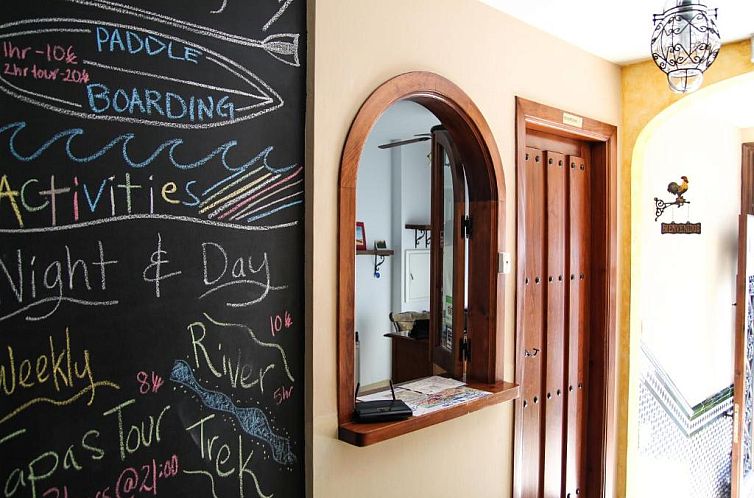 1hr - 10€
PADDLE
2hr tour - 20€
BOARDING
Activities
Night & Day
10€
River
5hr
Trek
Weekly
8€
Tapas Tour
@ 21:00
BIENVENIDOS